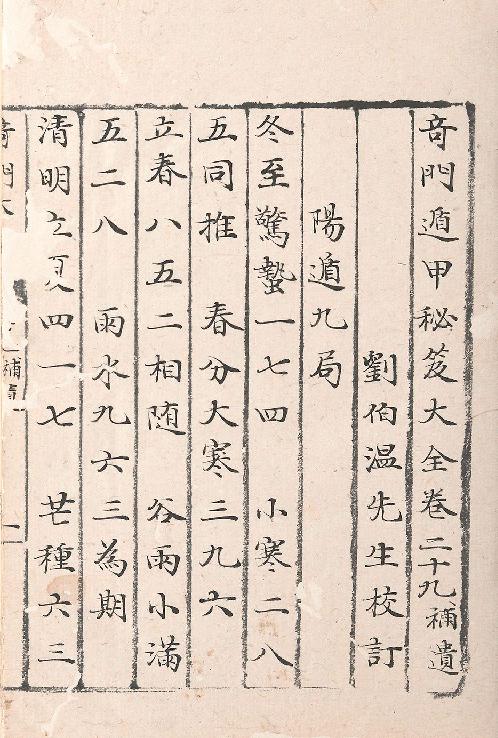 奇門遁甲秘笈大全卷二十九補遺
劉伯温先生校訂
陽遁九局
冬至驚蟄一七四　小寒二八
五同推　春分大寒三九六
立春八五二相随　谷雨小滿
五二八　雨水九六三為期
清明立夏四一七　芒種六三
奇門大 補遺 一